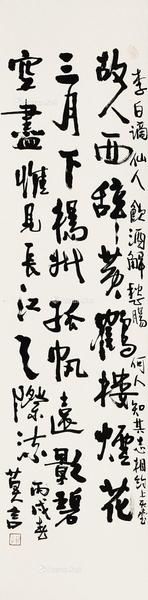 李白謫仙人飲酒解愁腸何人知其志相約上天堂
故人西辭黃鶴樓煙花
三月下楊州孤帆遠影碧
空盡惟見長江天際流
丙戌春
莫言